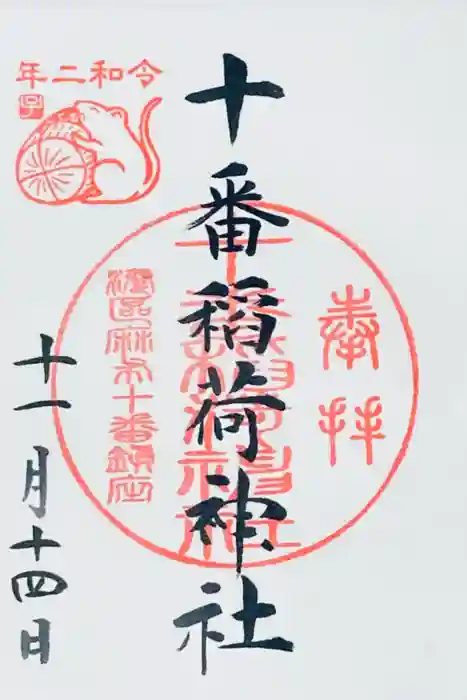 奉拝
十番稲荷神社
港区麻布十番鎮座
令和二年
子
十一月十四日